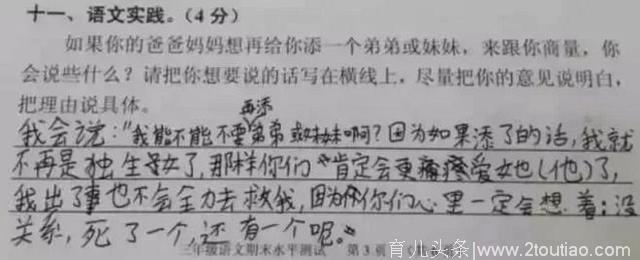 十一、语文实践。(4分)
如果你的爸爸妈妈想再给你添一个弟弟或妹妹，来跟你商量，你
会说些什么？请把你想要说的话写在横线上，尽量把你的意见说明白，
把理由说具体。
再添
我会说："我能不能不要弟弟或妹妹啊？因为如果添了的话，我就
不再是独生女了，那样你们肯定会更疼爱她(他)了，
我出了事也不会全力去救我，因为你们心里一定会想着：没
关系，死了一个，还有一个呢。"
三年级语文期末水平测试 第3页
育儿头条 www.2toutiao.com